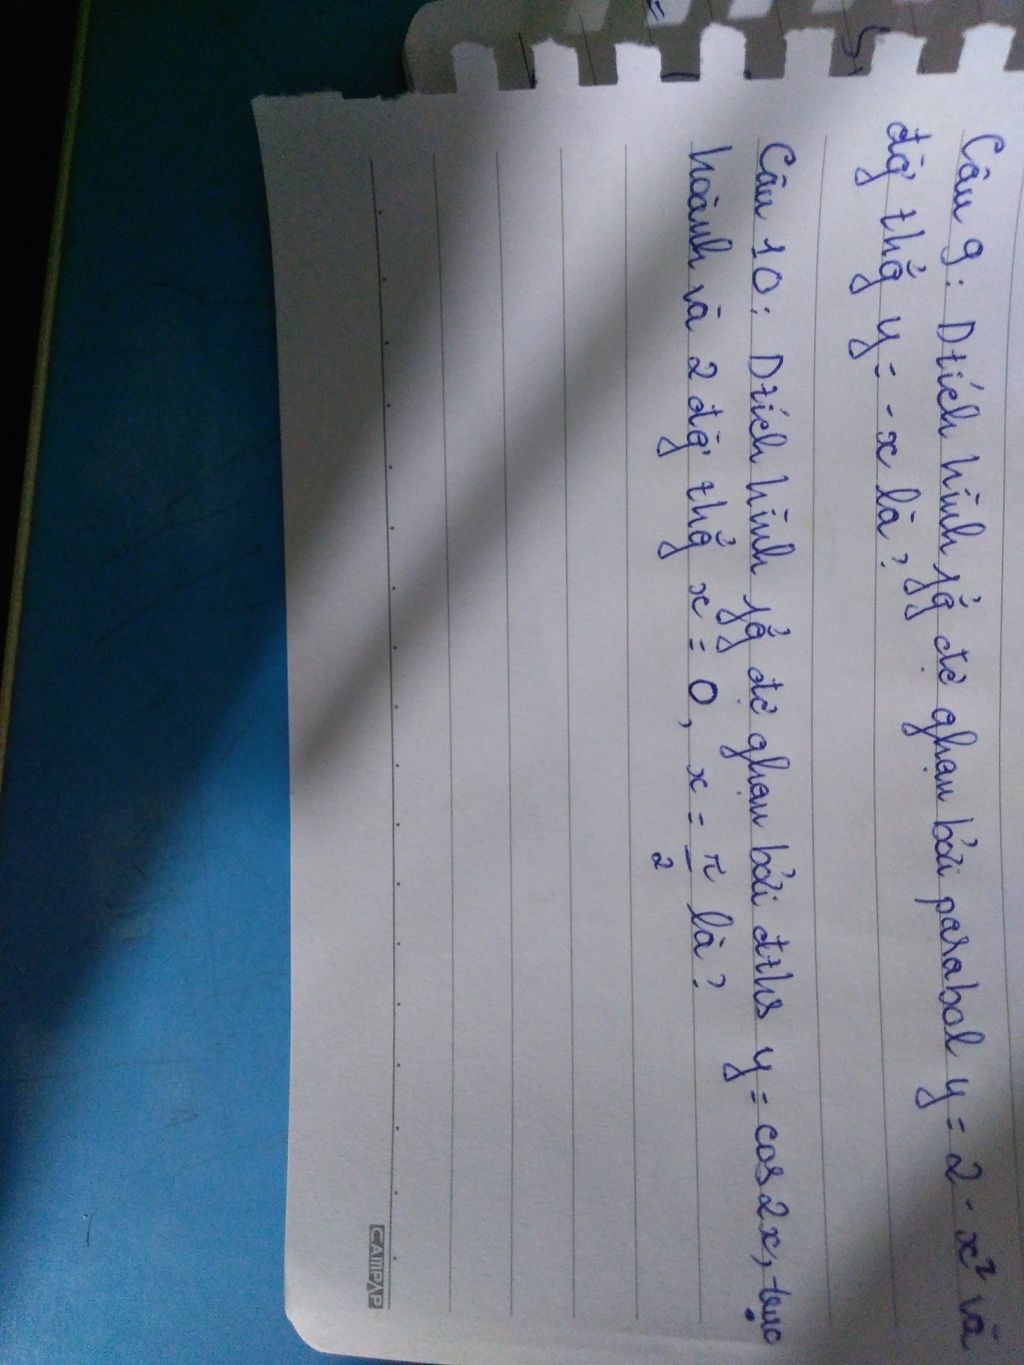 Câu 9: Dtích hình fẳg đc ghạn bởi parabol y = 2 - x² và
đg` thẳg y = - x là?
Câu 10: Dtích hình fẳg đc ghạn bởi đths y = cos2x, trục
hoành và 2 đg` thẳg x = 0, x = π/2 là?
CAMPAP